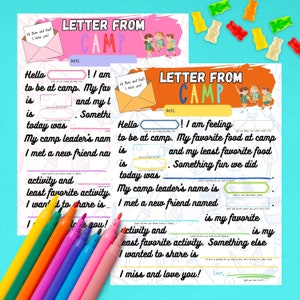 LETTER FROM
CAMP
Hi Mom and Dad!
I miss you!
DATE:
Hello ! I am
to be at camp. My favorite
is and my l
is . Something
today was
My camp leader's name
I met a new friend named
activity and
least favorite activity.
I wanted to share is
LETTER FROM
CAMP
Hi Mom and Dad!
I miss you!
DATE:
Hello ! I am feeling
to be at camp. My favorite food at camp
is and my least favorite food
is . Something fun we did
today was
My camp leader's name is
I met a new friend named
is my favorite
activity and is my
least favorite activity. Something else
I wanted to share is
I miss and love you! Love,